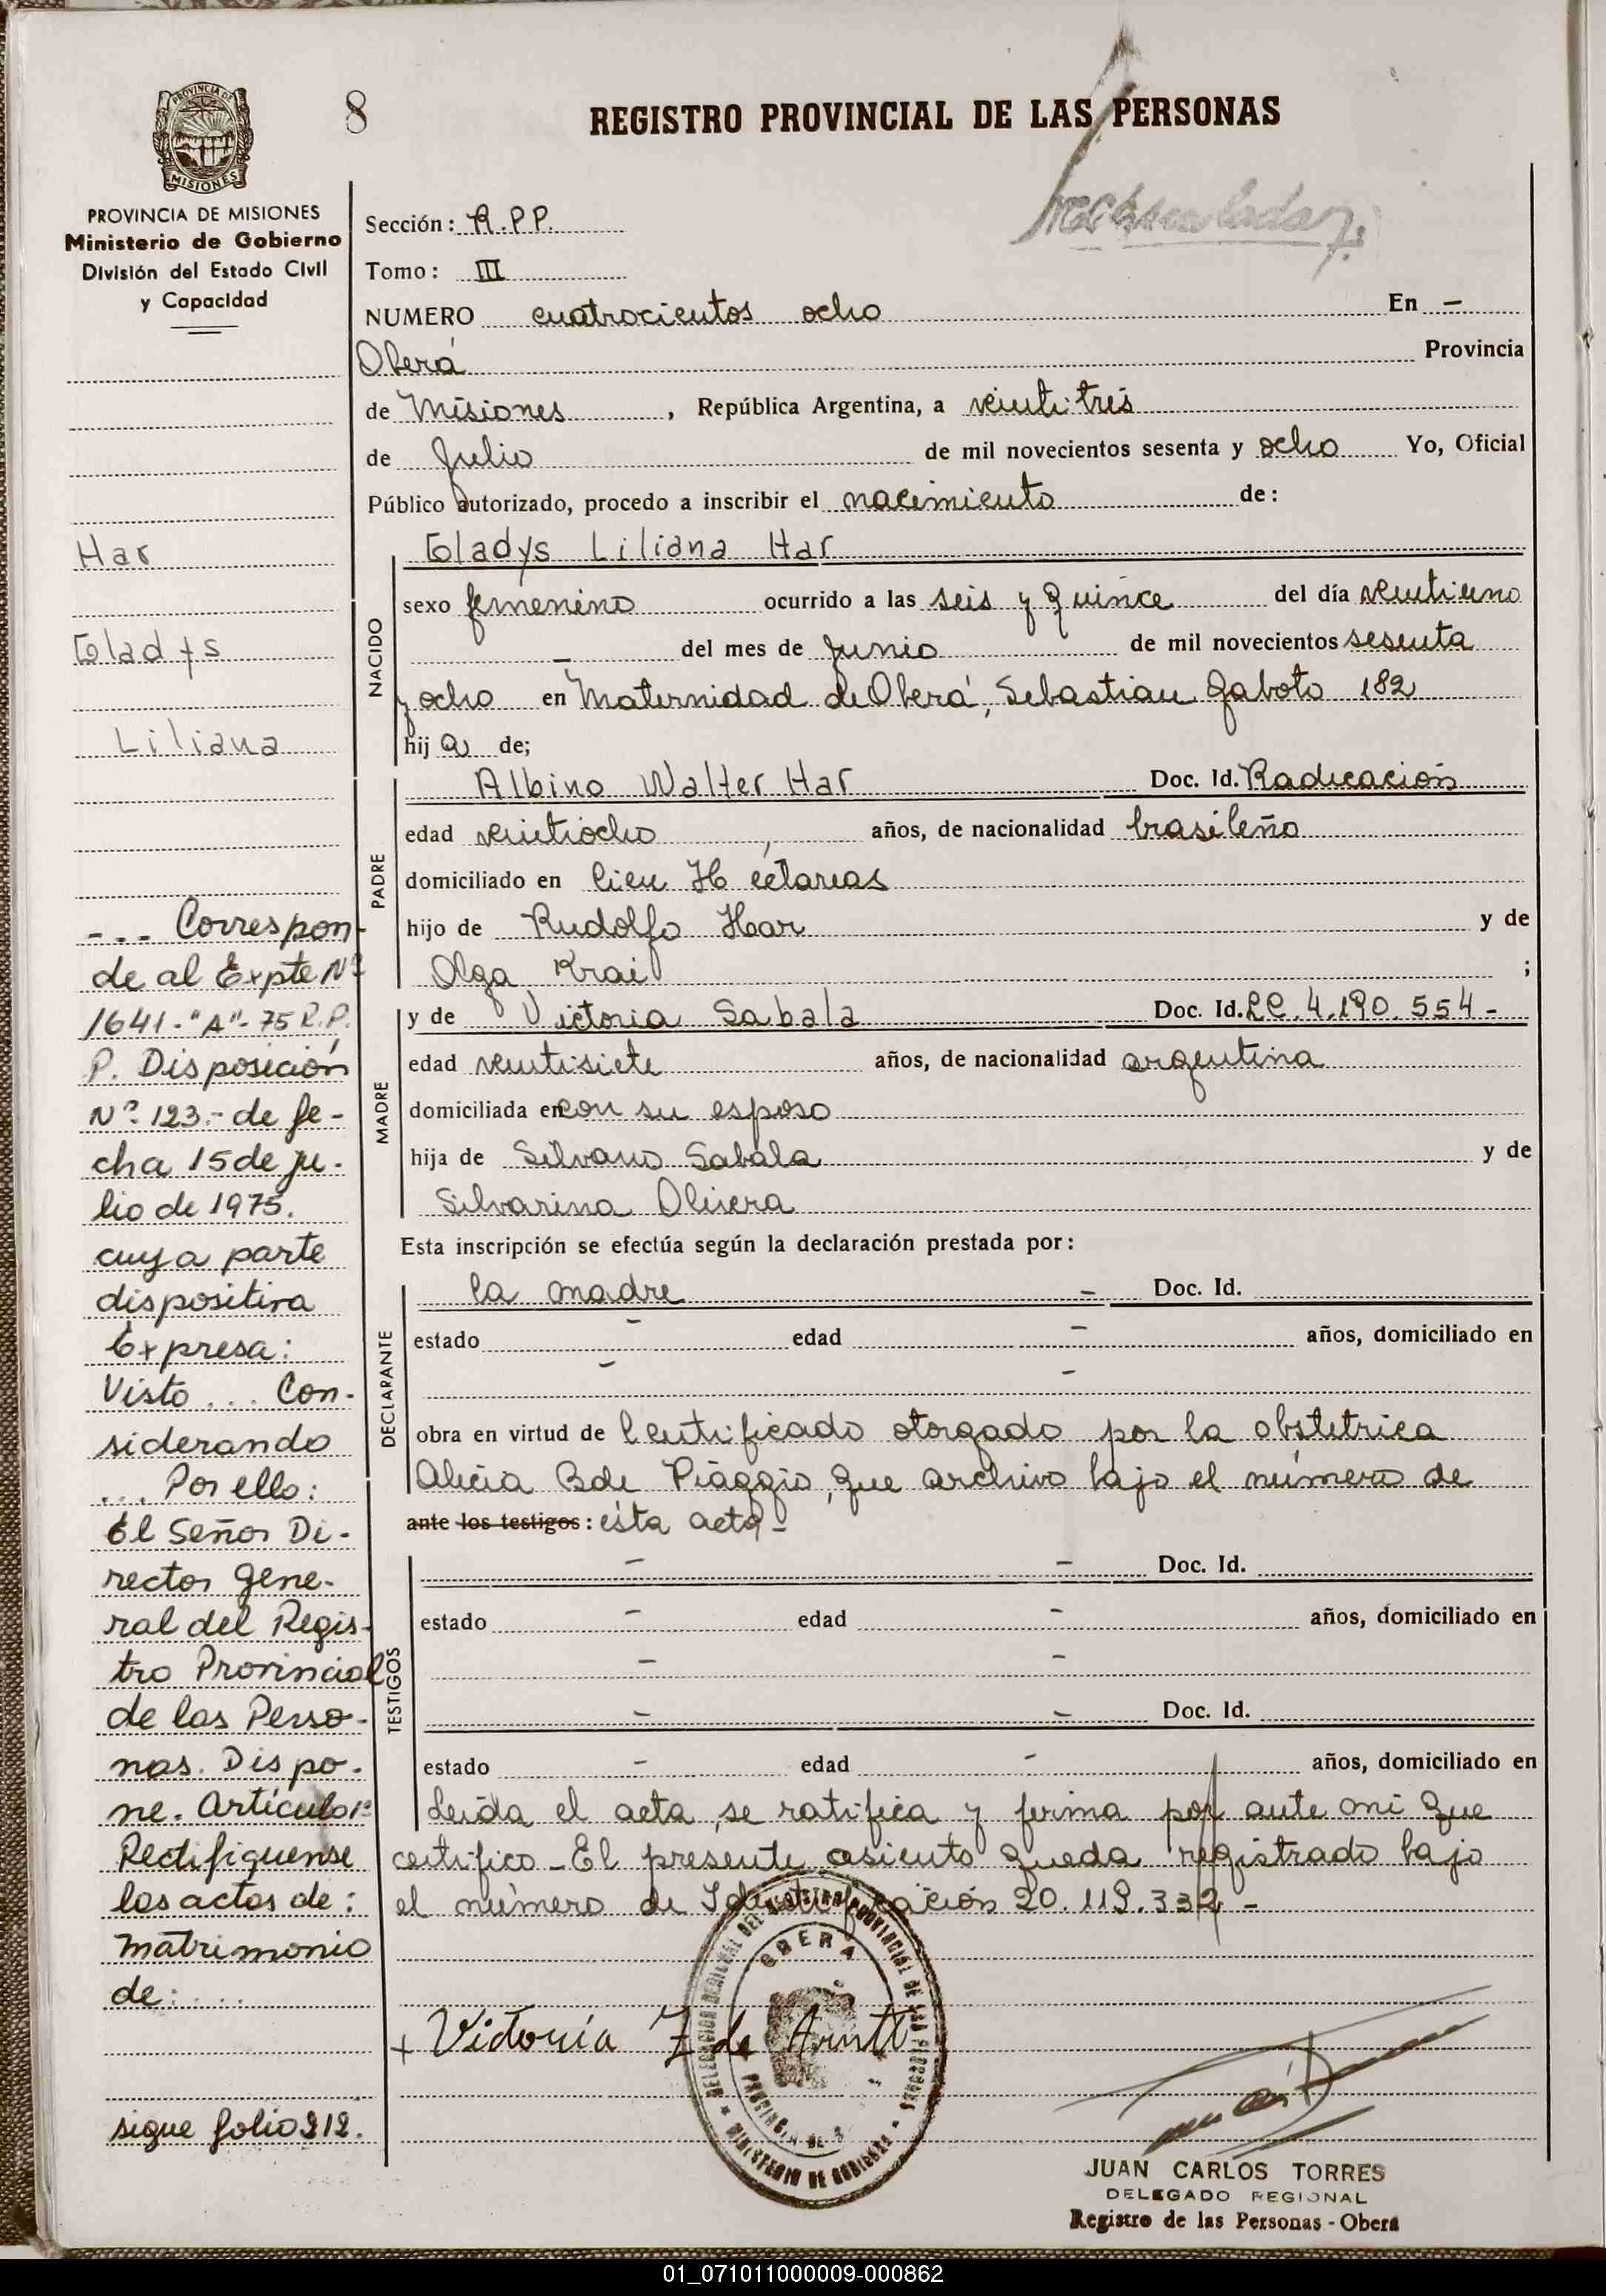 8
REGISTRO PROVINCIAL DE LAS PERSONAS
PROVINCIA DE MISIONES
PROVINCIA DE MISIONES
Ministerio de Gobierno
División del Estado Civil
y Capacidad
Sección: R.P.P.
Tomo: III
NUMERO cuatrocientos ocho En -
Oberá Provincia
de Misiones, República Argentina, a veintitrés
de Julio de mil novecientos sesenta y ocho Yo, Oficial
Público autorizado, procedo a inscribir el nacimiento de:
Har
Gladys
Liliana
NACIDO
Gladys Liliana Har
sexo femenino ocurrido a las seis y quince del día veintiuno
- del mes de Junio de mil novecientos sesenta
y ocho en Maternidad de Oberá, Sebastian Gaboto 182
hija de;
PADRE
Albino Walter Har Doc. Id. Radicación
edad veintiocho, años, de nacionalidad brasileño
domiciliado en Cien Hectareas
hijo de Rudolfo Har y de
Olga Krail ;
MADRE
y de Victoria Sabala Doc. Id. LC. 4.190.554-
edad veintisiete años, de nacionalidad argentina
domiciliada en con su esposo
hija de Silvano Sabala y de
Silvarina Olivera
Esta inscripción se efectúa según la declaración prestada por:
DECLARANTE
la madre - Doc. Id.
estado - edad - años, domiciliado en
- -
obra en virtud de Certificado otorgado por la obstetrica
Alicia B de Piaggio, que archivo bajo el número de
ante los testigos: ésta acta-
TESTIGOS
- - Doc. Id.
estado - edad - años, domiciliado en
- -
- - Doc. Id.
estado - edad - años, domiciliado en
Leida el acta, se ratifica y firma por ante mi que
certifico - El presente asiento queda registrado bajo
el número de Identificación 20.119.332 -
--- Correspon-
de al Expte Nº
1641-"A"-75 R.P.
P. Disposición
Nº 123.- de fe-
cha 15 de ju-
lio de 1975.
cuya parte
dispositiva
Expresa:
Visto... Con-
siderando
... Por ello:
El Señor Di-
rector Gene-
ral del Regis-
tro Provincial
de las Perso-
nas. Dispo-
ne. Artículo 1º
Rectifiquense
las actas de:
matrimonio
de:....
sigue folio 212.
+ Victoria Z de Arntt
DELEGACION REGIONAL DEL REGISTRO PROVINCIAL DE LAS PERSONAS
OBERA
MINISTERIO DE GOBIERNO
JUAN CARLOS TORRES
DELEGADO REGIONAL
Registro de las Personas - Oberá
01_071011000009-000862